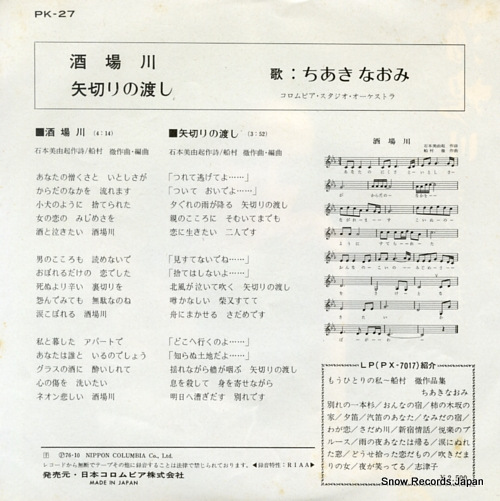 PK-27
酒場川
矢切りの渡し
歌：ちあきなおみ
コロムビア・スタジオ・オーケストラ
■酒場川（4：14）
石本美由起作詩/船村 徹作曲・編曲
あなたの憎くさと いとしさが
からだのなかを 流れます
小犬のように 捨てられた
女の恋の みじめさを
酒と泣きたい 酒場川
男のこころも 読めないで
おぼれるだけの 恋でした
死ぬより辛い 裏切りを
怨んでみても 無駄なのね
涙こぼれる 酒場川
私と暮した アパートで
あなたは誰と いるのでしょう
グラスの酒に 酔いしれて
心の傷を 洗いたい
ネオン悲しい 酒場川
■矢切りの渡し（3：52）
石本美由起作詩/船村 徹作曲・編曲
「つれて逃げてよ……」
「ついて おいでよ……」
夕ぐれの雨が降る 矢切りの渡し
親のこころに そむいてまでも
恋に生きたい 二人です
「見すてないでね……」
「捨てはしないよ……」
北風が泣いて吹く 矢切りの渡し
噂かなしい 柴又すてて
舟にまかせる さだめです
「どこへ行くのよ……」
「知らぬ土地だよ……」
揺れながら櫓が咽ぶ 矢切りの渡し
息を殺して 身を寄せながら
明日へ漕ぎだす 別れです
酒場川
石本美由起 作詩
船村 徹 作曲
LP(PX-7017)紹介
もうひとりの私～船村 徹作品集
ちあきなおみ
別れの一本杉/おんなの宿/柿の木坂の
家/夕笛/汽笛のあなた/なみだの宿/
わが恋/さだめ川/新宿情話/悦楽のブ
ルース/雨の夜あなたは帰る/涙にぬれ
た恋/どうせ拾った恋だもの/吹きだま
りの女/夜が笑ってる/志津子
¥2,500
Ⓟ76・10 NIPPON COLUMBIA Co., Ltd.
レコードから無断でテープその他に録音することは法律で禁じられております。◀録音特性：RIAA▶
発売元・日本コロムビア株式会社
MADE IN JAPAN
Snow Records Japan